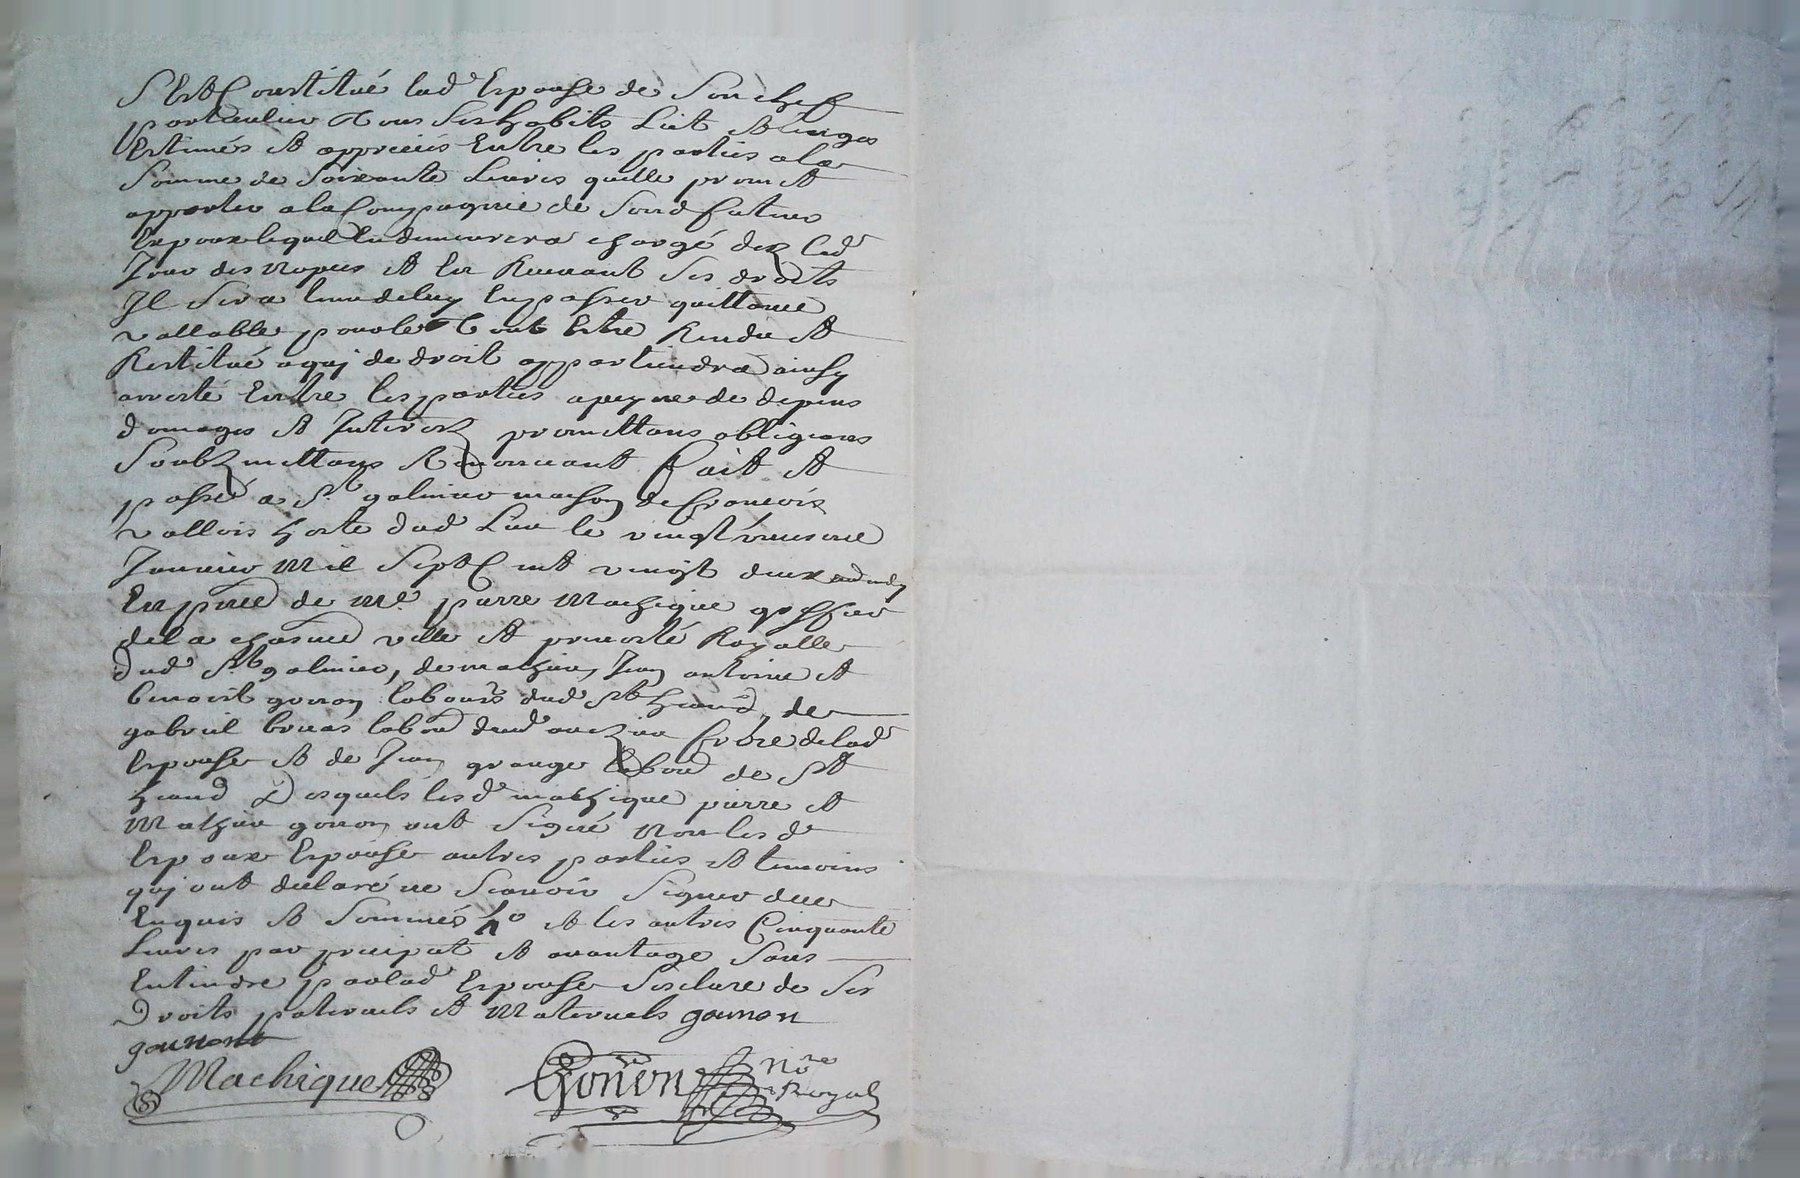 S'Est Constitué lad.e Espouse de Son chef
particulier Tous Ses habits Lict et linges
Estimés et appreciés Entre les parties a la
Somme de Soixante Livres quelle promet
apporter a la Compagnie de Sond futur
Espoux lequel En demeurera chargé dez Led.
Jour des Nopces et En Recevant Ses droits
Il Sera tenu de luy En passer quittance
vallable pour le Tout Estre Rendu et
Restitué a quj de droit appartiendra ainsy
arresté Entre les parties a peyne de depens
domages et Interestz promettans obligeans
Soubzmettans Renonceant fait et
passé a St galmier maison de francois
vallois hoste dud Lieu le vingt troisieme
Janvier Mil Sept Cent vingt deux
En pnce de Me. pierre Machique greffier
de la chasnie ville et prevosté Royalle
dud St galmier, de mathieu, Jean antoine et
benoist gonon labours dud St heand, de
gabriel bruas labour dud frere de lad
Espouse et de Jean grange labour de St
heand Desquels lesd machique pierre et
Mathieu gonon ont Signé Non lesd
Espoux Espouse autres parties et temoins
quj ont declaré ne Scavoir Signer de ce
Enquis et Sommés et les autres Cinquante
Livres par preciput et avantage Sans
Entendre par lad Espouse Sesclure de Ses
Droits paternels et Maternels gounon
gounont
Machique Gonon Nore
Royal